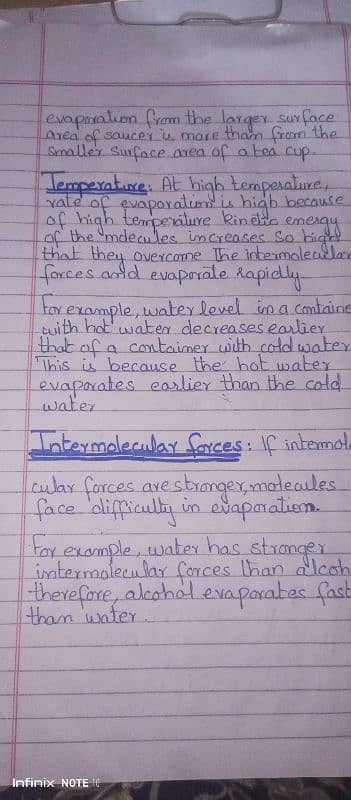 evaporation from the larger surface
area of saucer is more than from the
smaller surface area of a tea cup.
Temperature: At high temperature,
rate of evaporation is high because
of high temperature kinetic energy
of the molecules increases so high
that they overcome The intermolecular
forces and evaporate rapidly
For example, water level in a containe
with hot water decreases earlier
that of a container with cold water
This is because the hot water
evaporates earlier than the cold
water
Intermolecular forces: If intermole
cular forces are stronger, molecules
face difficulty in evaporation.
For example, water has stronger
intermolecular forces than alcoh
therefore, alcohol evaporates fast
than water.
Infinix NOTE